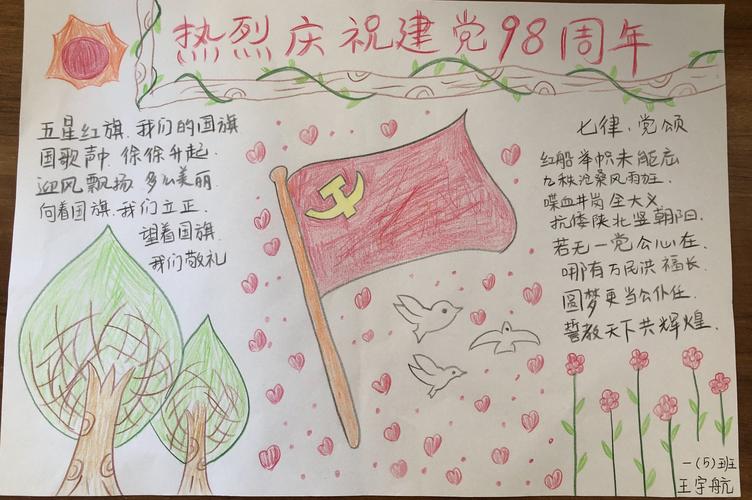 热烈庆祝建党98周年
五星红旗.我们的国旗
国歌声中.徐徐升起.
迎风飘扬.多么美丽.
向着国旗.我们立正.
望着国旗.
我们敬礼.
七律.党颂
红船举帜未能忘
九秩沧桑风雨
喋血井岗全大义
抗倭陕北竖朝阳.
若无一党公心在.
哪有万民洪福长.
圆梦更当公仆任.
誓教天下共辉煌.
一(5)班
王宇航